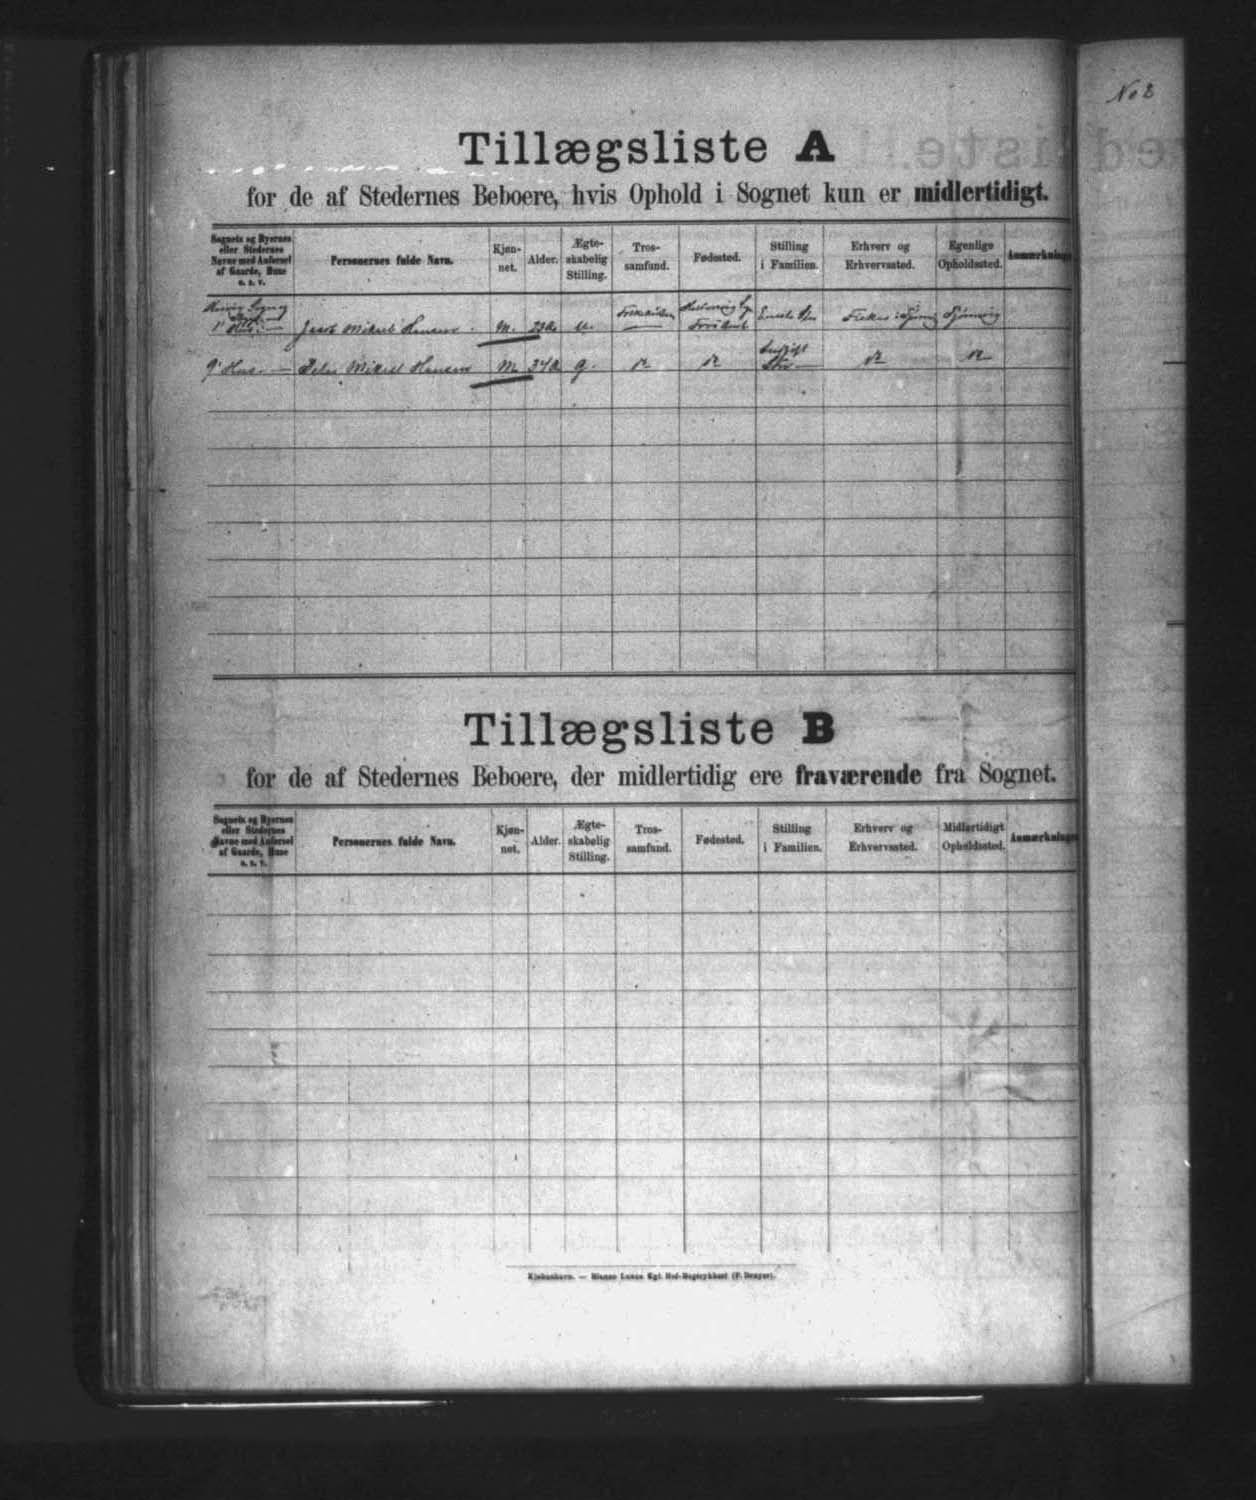 No 2
Tillægsliste A
for de af Stedernes Beboere, hvis Ophold i Sognet kun er midlertidigt.
Sognets og Byernes eller Stedernes Navne med Anførsel af Gaarde, Huse o. s. v.
Personernes fulde Navn.
Kjøn-net.
Alder.
Ægte-skabelig Stilling.
Tros-samfund.
Fødested.
Stilling i Familien.
Erhverv og Erhvervssted.
Egenlige Opholdssted.
Anmærkninger
1' Hus. Jacob Mikael Hansen. M. u.
9' Hus. Peder Mikael Hansen M. 34 g.
Tillægsliste B
for de af Stedernes Beboere, der midlertidig ere fraværende fra Sognet.
Sognets og Byernes eller Stedernes Navne med Anførsel af Gaarde, Huse o. s. v.
Personernes fulde Navn.
Kjøn-net.
Alder.
Ægte-skabelig Stilling.
Tros-samfund.
Fødested.
Stilling i Familien.
Erhverv og Erhvervssted.
Midlertidigt Opholdssted.
Anmærkninger
Kjøbenhavn. — Bianco Lunos Kgl. Hof-Bogtrykkeri (F. Dreyer).